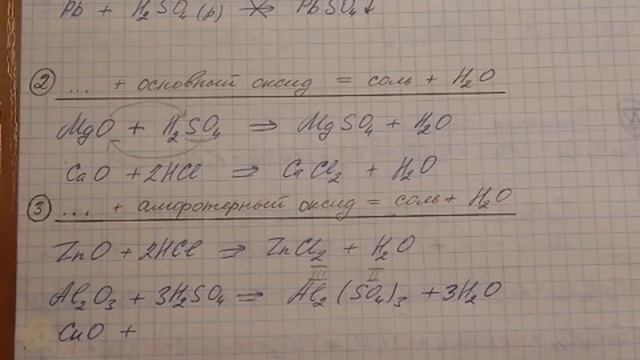 Pb + H₂SO₄(р) ⇏ PbSO₄↓
② ... + основный оксид = соль + H₂O
MgO + H₂SO₄ ⇒ MgSO₄ + H₂O
CaO + 2HCl ⇒ CaCl₂ + H₂O
③ ... + амфотерный оксид = соль + H₂O
ZnO + 2HCl ⇒ ZnCl₂ + H₂O
III II
Al₂O₃ + 3H₂SO₄ ⇒ Al₂(SO₄)₃ + 3H₂O
CuO +